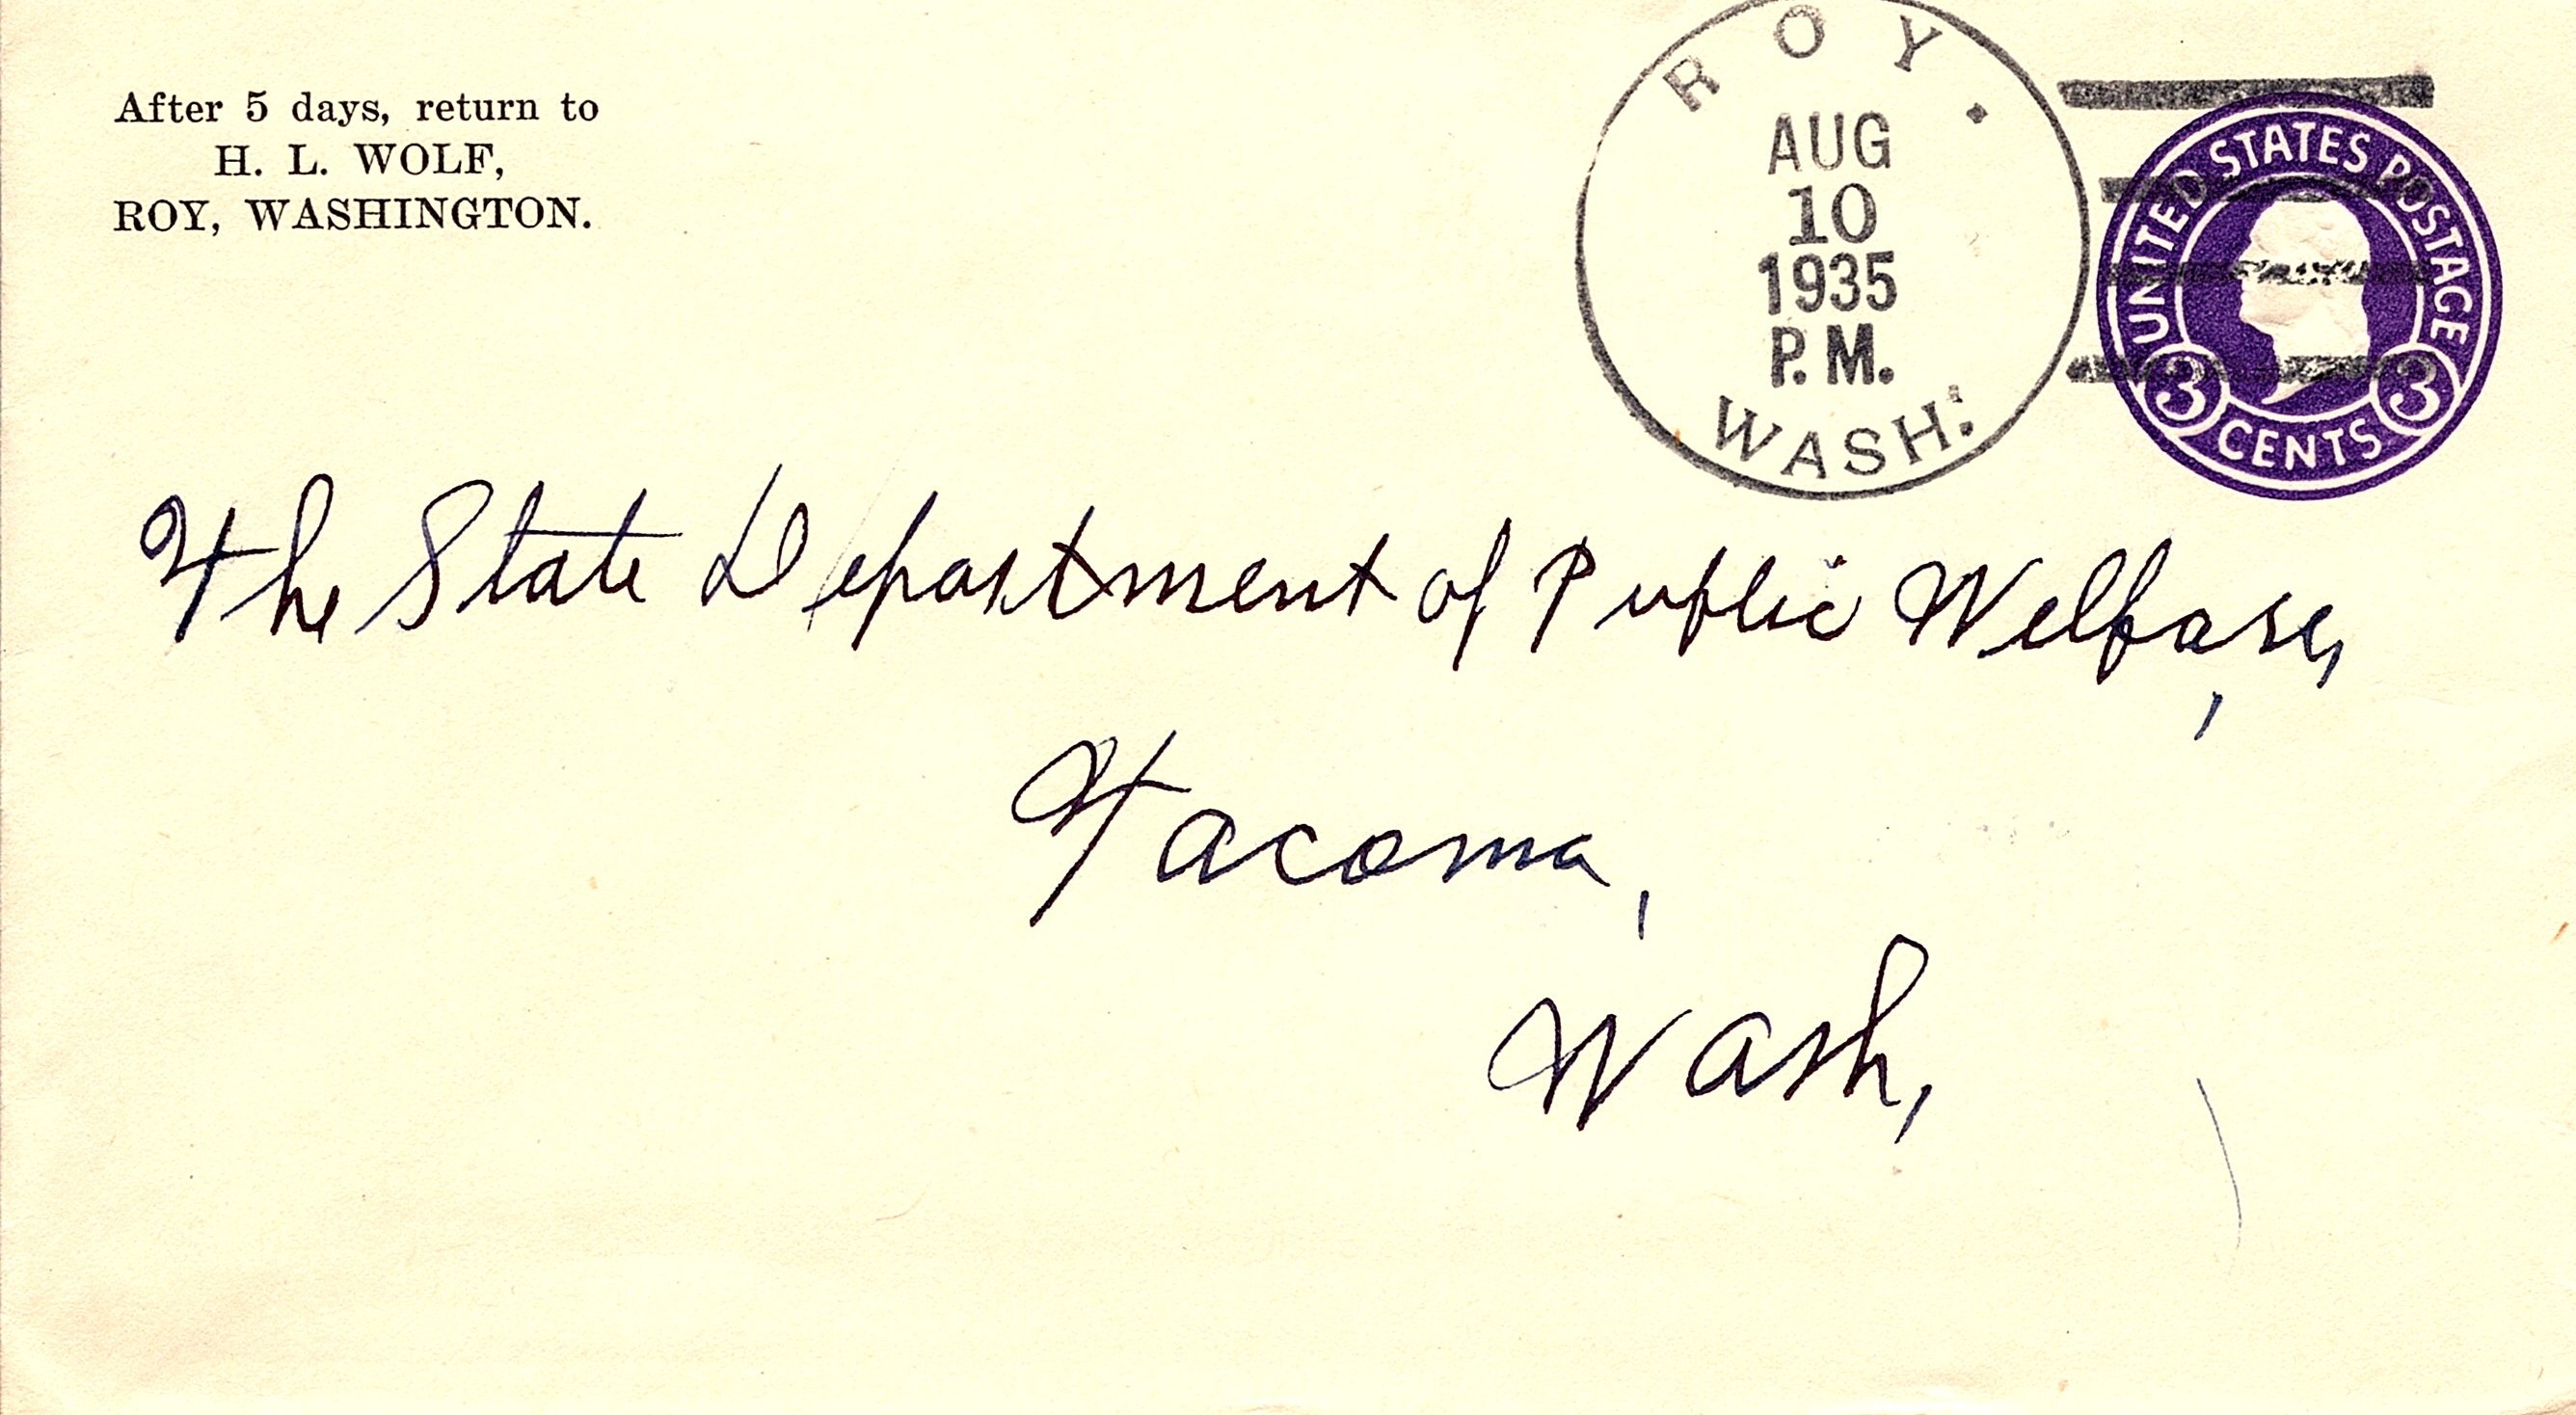 After 5 days, return to
H. L. WOLF,
ROY, WASHINGTON.
ROY.
AUG
10
1935
P.M.
WASH.
UNITED STATES POSTAGE
3 CENTS 3
The State Department of Public Welfare,
Tacoma,
Wash,